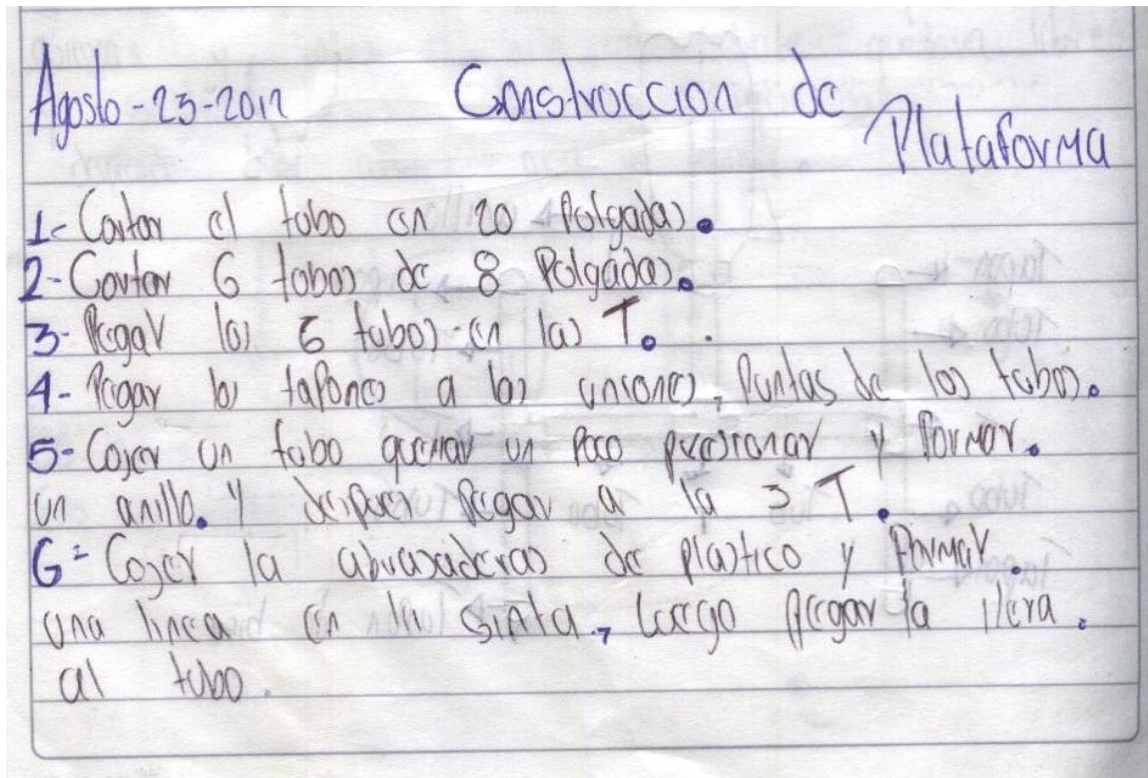 Agosto-23-2012 Construccion de
Plataforma
1- Cortar el tubo en 20 Pulgadas.
2- Cortar 6 tubos de 8 Pulgadas.
3- Pegar los 6 tubos en las T.
4- Pegar los tapones a las uniones, Puntas de los tubos.
5- Cojer un tubo quemar un Poco presionar y formar.
un anillo. Y despues Pegar a la 3 T.
6- Cojer la abrasaderas de plastico y formar.
una linea en la sinta, luego pegar la
al tubo.